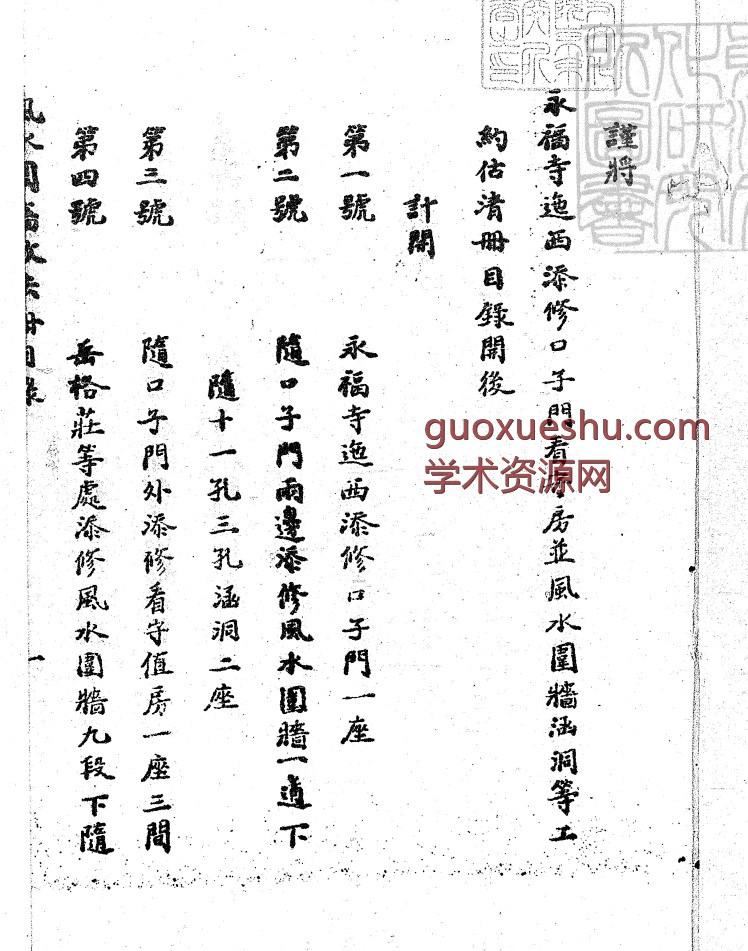 謹將
永福寺迤西添修口子門看守房並風水圍牆涵洞等工
約估清冊目錄開後
計開
第一號 永福寺迤西添修口子門一座
第二號 隨口子門兩邊添修風水圍牆一道下
隨十一孔三孔涵洞二座
第三號 隨口子門外添修看守值房一座三間
第四號 岳格莊等處添修風水圍牆九段下隨
一
guoxueshu.com
学术资源网